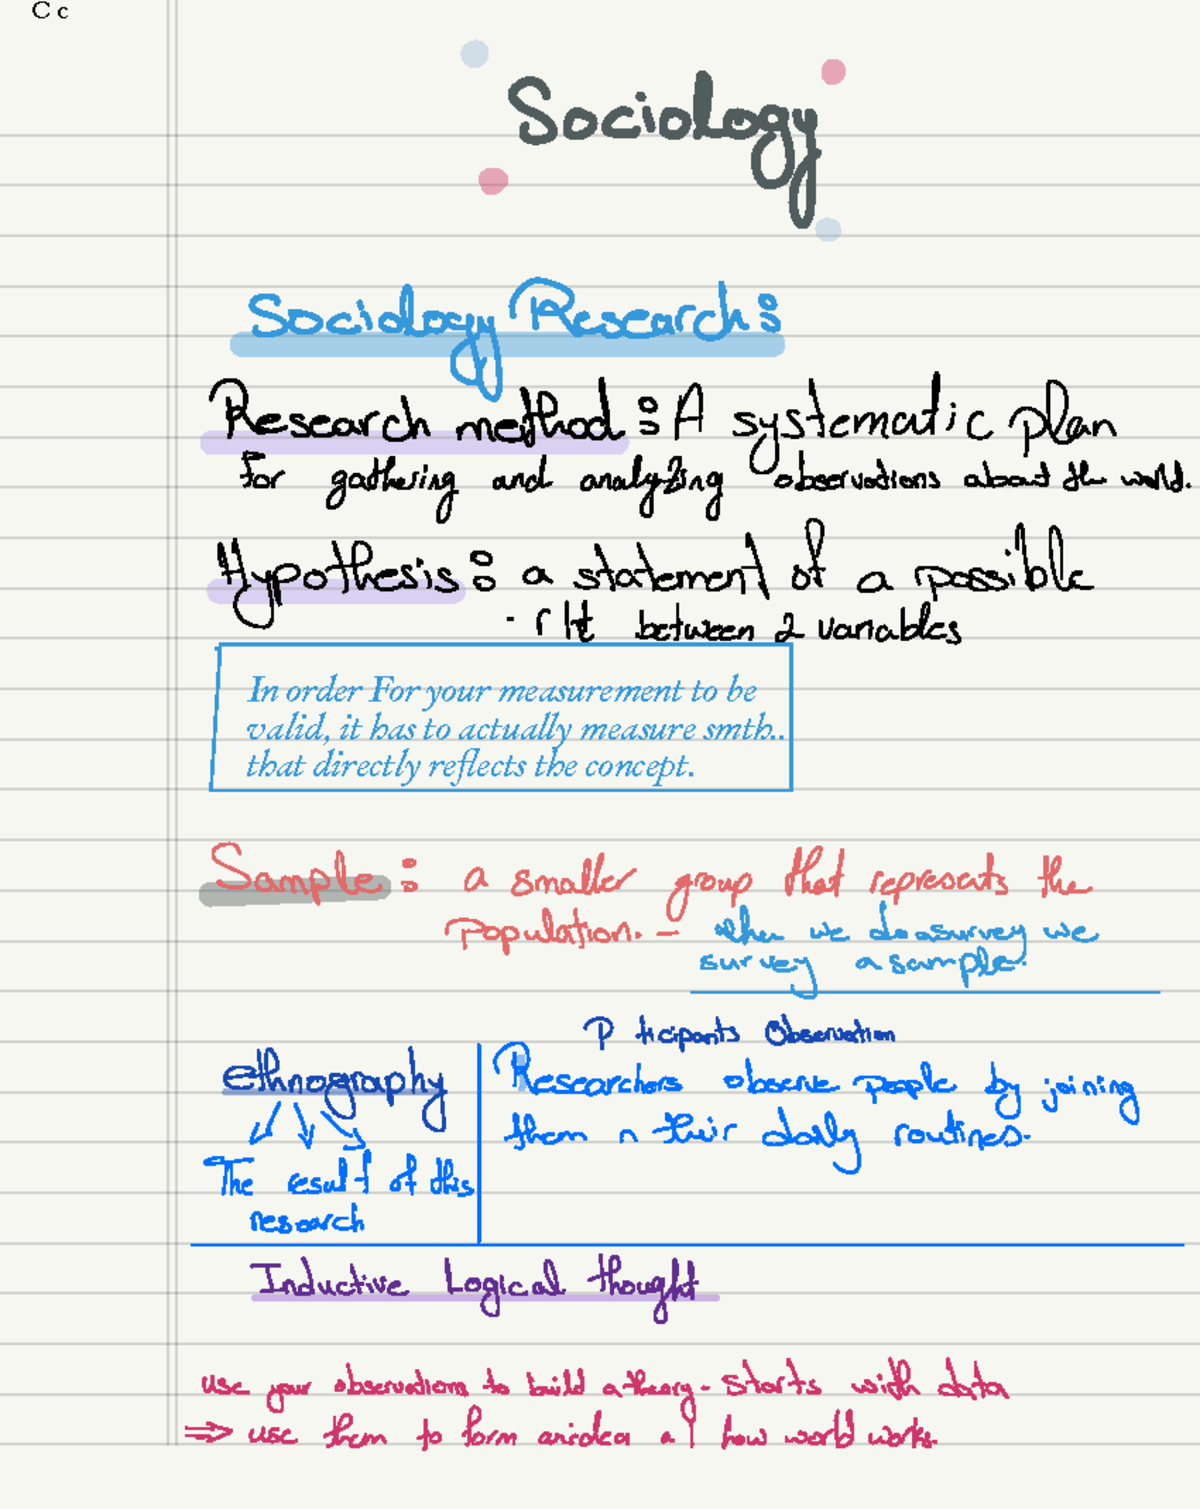 C c
Sociology
Sociology Research:
Research method: A systematic plan
For gathering and analyzing observations about the world.
Hypothesis: a statement of a possible
between 2 variables
In order For your measurement to be
valid, it has to actually measure smth..
that directly reflects the concept.
Sample: a smaller group that represents the
Population. - when we do a survey we
survey a sample.
P ticipants Observation
ethnography
Researchers observe people by joining
them n their daily routines.
The result of this
research
Inductive Logical thought
use your observations to build a theory - starts with data
⇒ use them to form an idea how world works.